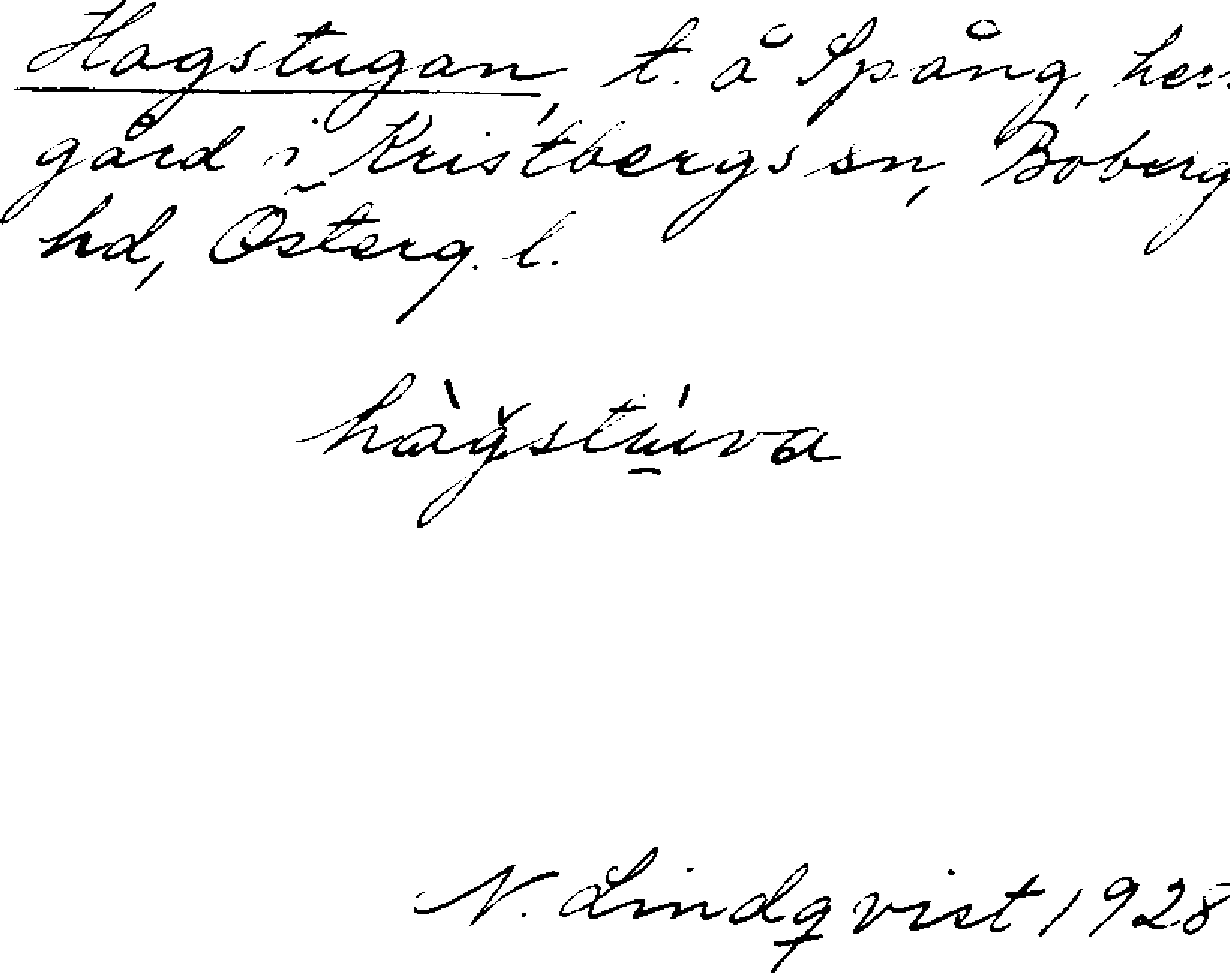 Hagstugan, t. å Spång, herr
gård i Kristbergs sn, Boberg
hd, Österg. l.
hàǧstú̱va
N. Lindqvist 1928